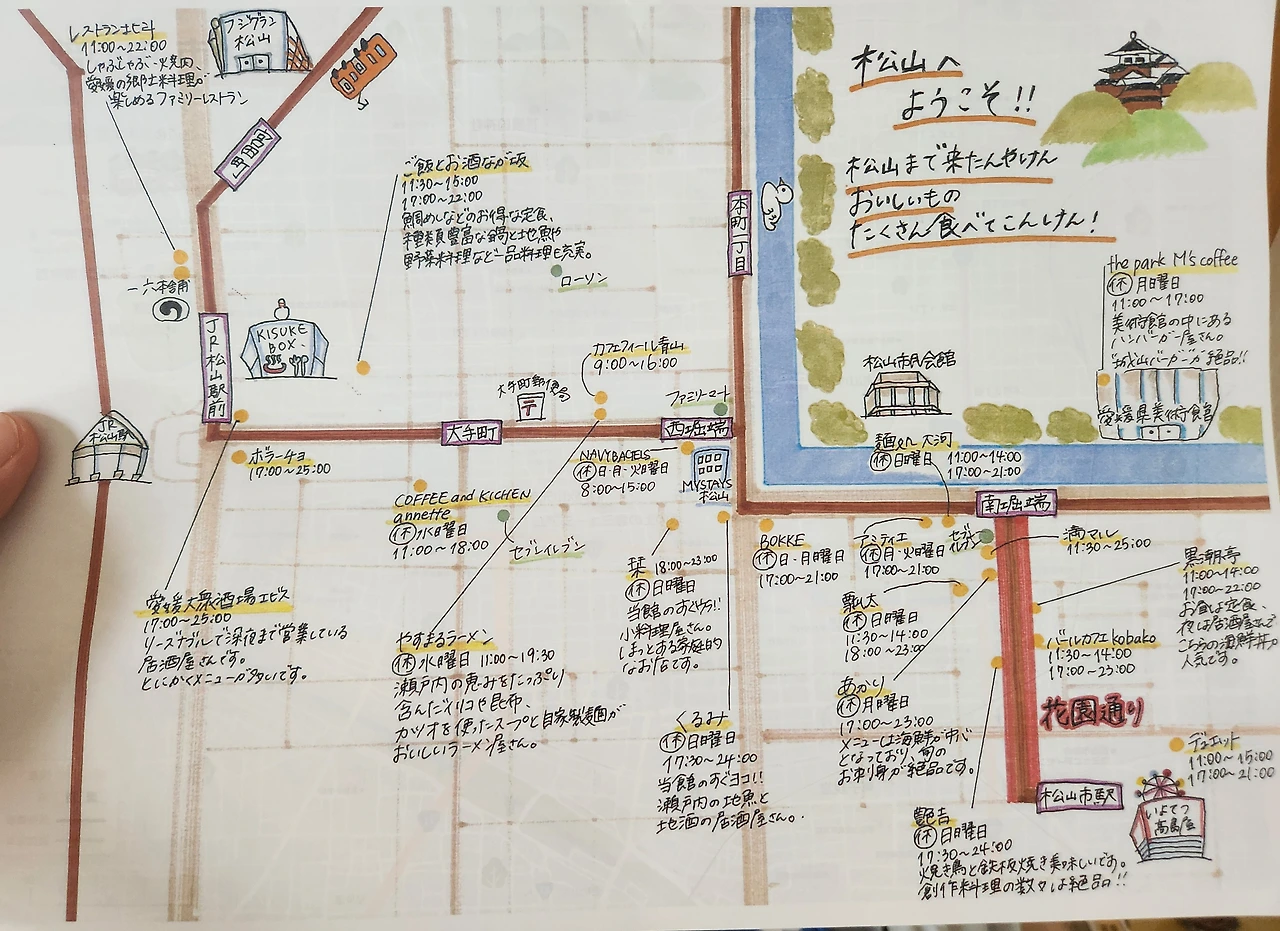 レストラン北斗
11:00~22:00
しゃぶしゃぶ・焼肉、
愛媛の郷土料理が
楽しめるファミリーレストラン
フジグラン
松山
宮田町
一六本舗
JR松山駅前
KISUKE
BOX
JR
松山駅
ご飯とお酒なが坂
11:30~15:00
17:00~22:00
鯛めしなどのお得な定食、
種類豊富な鍋と地魚や
野菜料理など一品料理も充実。
ローソン
本町一丁目
松山へ
ようこそ!!
松山まで来たんやけん
おいしいもの
たくさん食べてこんけん!
the park M's coffee
休 月曜日
11:00~17:00
美術館の中にある
ハンバーガー屋さん。
"城山バーガー"が絶品!!
愛媛県美術館
松山市民会館
カフェフィール青山
9:00~16:00
大手町郵便局
〒
ファミリーマート
大手町
西堀端
南堀端
ボラーチョ
17:00~25:00
COFFEE and KICHEN
annette
休 水曜日
11:00~18:00
セブンイレブン
NAVYBAGELS
休 日・月・火曜日
8:00~15:00
MYSTAYS
松山
麺処 大河
休 日曜日
11:00~14:00
17:00~21:00
愛媛大衆酒場エビス
17:00~25:00
リーズナブルで深夜まで営業している
居酒屋さんです。
とにかくメニューが多いです。
やすまるラーメン
休 水曜日 11:00~19:30
瀬戸内の恵みをたっぷり
含んだイリコや昆布、
カツオを使ったスープと自家製麺が
おいしいラーメン屋さん。
栞 18:00~23:00
休 日曜日
当館のすぐウラ!!
小料理屋さん。
ほっとする家庭的
なお店です。
くるみ
休 日曜日
17:30~24:00
当館のすぐヨコ!!
瀬戸内の地魚と
地酒の居酒屋さん。
BOKKE
休 日・月曜日
17:00~21:00
アミティエ
休 月・火曜日
17:00~21:00
セブン
イレブン
満マル
11:30~25:00
瓢太
休 日曜日
11:30~14:00
18:00~23:00
あかり
休 月曜日
17:00~23:00
メニューは海鮮が中心
となっており、旬の
お刺身が絶品です。
黒潮亭
11:00~14:00
17:00~22:00
お昼は定食、
夜は居酒屋さんで
こちらの海鮮丼が
人気です。
バールカフェ kobako
11:30~14:00
17:00~23:00
花園通り
デュエット
11:00~15:00
17:00~21:00
松山市駅
いよてつ
髙島屋
艶吉
休 日曜日
17:30~24:00
焼き鳥と鉄板焼き美味しいです。
創作料理の数々は絶品!!